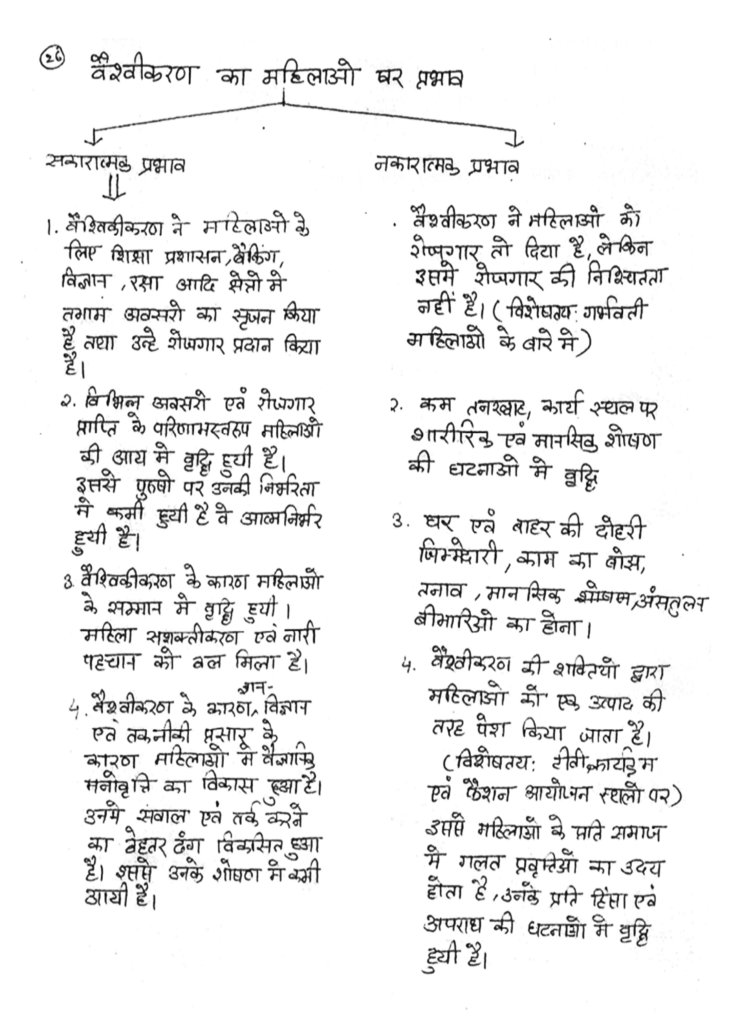 26
वैश्वीकरण का महिलाओ पर प्रभाव
सकारात्मक प्रभाव
1. वैश्विकीकरण ने महिलाओ के
लिए शिक्षा प्रशासन, बैंकिंग,
विज्ञान, रक्षा आदि क्षेत्रो मे
तमाम अवसरो का सृजन किया
है तथा उन्हे रोजगार प्रदान किया
है।
2. विभिन्न अवसरो एवं रोजगार
प्राप्ति के परिणामस्वरुप महिलाओ
की आय मे वृद्धि हुयी है।
इससे पुरुषो पर उनकी निर्भरिता
मे कमी हुयी है वे आत्मनिर्भर
हुयी है।
3. वैश्विकीकरण के कारण महिलाओ
के सम्मान मे वृद्धि हुयी।
महिला सशक्तीकरण एवं नारी
पहचान को बल मिला है।
4. वैश्वीकरण के कारण, ज्ञान-विज्ञान
एवं तकनीकी प्रसार के
कारण महिलाओ मे वैज्ञानिक
मनोवृत्ति का विकास हुआ है।
उनमे सवाल एवं तर्क करने
का बेहतर ढंग विकसित हुआ
है। इससे उनके शोषण मे कमी
आयी है।
नकारात्मक प्रभाव
. वैश्वीकरण ने महिलाओ को
रोजगार तो दिया है, लेकिन
इसमे रोजगार की निश्चितता
नहीं है। (विशेषतय: गर्भवती
महिलाओ के बारे मे)
2. कम तनख्वाह, कार्य स्थल पर
शारीरिक एवं मानसिक शोषण
की घटनाओ मे वृद्धि
3. घर एवं बाहर की दोहरी
जिम्मेदारी, काम का बोझ,
तनाव, मानसिक असंतुलन
बीमारिओ का होना।
4. वैश्वीकरण की शक्तियो द्वारा
महिलाओ को एक उत्पाद की
तरह पेश किया जाता है।
(विशेषतय: टीवी कार्यक्रम
एवं फैशन आयोजन स्थलो पर)
इससे महिलाओ के प्रति समाज
मे गलत प्रवृत्तिओ का उदय
होता है, उनके प्रति हिंसा एवं
अपराध की घटनाओ मे वृद्धि
हुयी है।